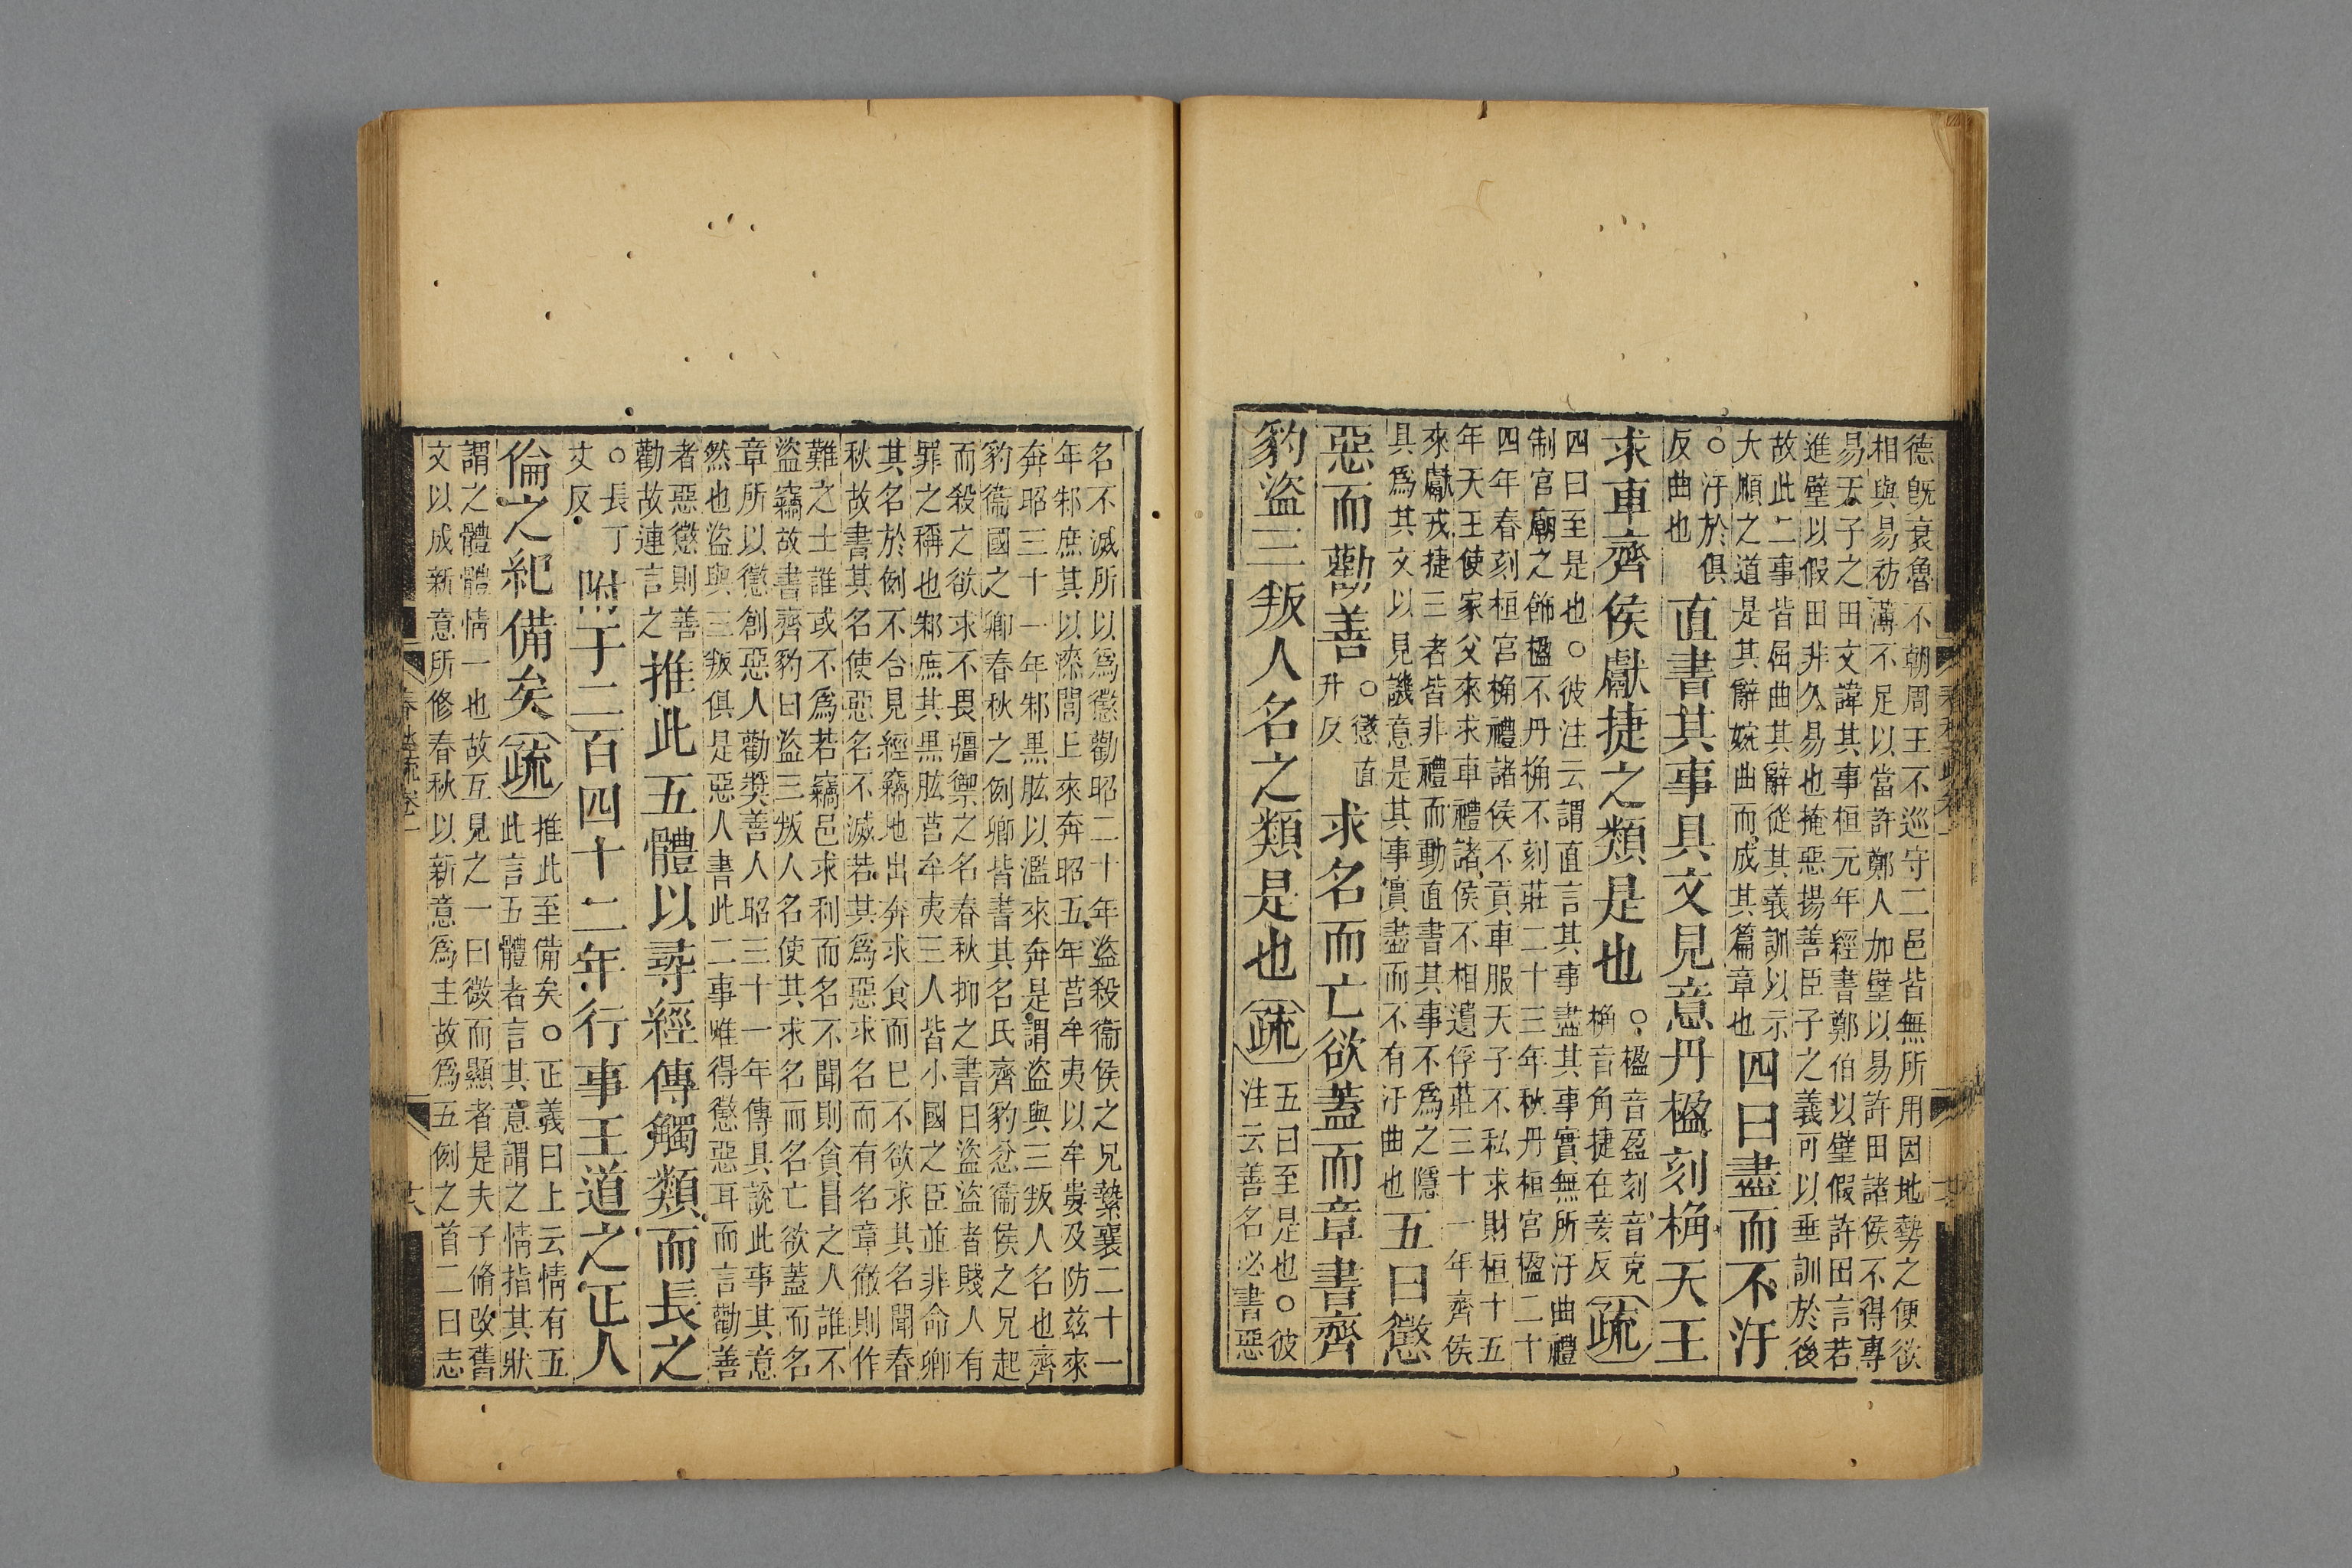 德旣衰魯不朝周王不巡守二邑皆無所用因地勢之便欲
相與易祊薄不足以當許鄭人加璧以易許田諸侯不得專
易天子之田文諱其事桓元年經書鄭伯以璧假許田言若
進璧以假田非久易也掩惡揚善臣子之義可以垂訓於後
故此二事皆屈曲其辭從其義訓以示
大順之道是其辭婉曲而成其篇章也
四曰盡而不汙
○汙於俱
反曲也
直書其事具文見意丹楹刻桷天王
求車齊侯獻捷之類是也
○楹音盈刻音克
桷音角捷在妾反
疏
四曰至是也○彼注云謂直言其事盡其事實無所汙曲禮
制宮廟之飾楹不丹桷不刻莊二十三年秋丹桓宮楹二十
四年春刻桓宮桷禮諸侯不貢車服天子不私求財桓十五
年天王使家父來求車禮諸侯不相遺俘莊三十一年齊侯
來獻戎捷三者皆非禮而動直書其事不爲之隱
具爲其文以見譏意是其事實盡而不有汙曲也
五曰懲
惡而勸善
○懲直
升反
求名而亡欲蓋而章書齊
豹盜三叛人名之類是也
疏
五曰至是也○彼
注云善名必書惡
名不滅所以爲懲勸昭二十年盜殺衞侯之兄縶襄二十一
年邾庶其以漆閭上來奔昭五年莒牟夷以牟婁及防茲來
奔昭三十一年邾黑肱以濫來奔是謂盜與三叛人名也齊
豹衞國之卿春秋之例卿皆書其名氏齊豹忿衞侯之兄起
而殺之欲求不畏彊禦之名春秋抑之書曰盜盜者賤人有
罪之稱也邾庶其黑肱莒牟夷三人皆小國之臣並非命卿
其名於例不合見經竊地出奔求食而已不欲求其名聞春
秋故書其名使惡名不滅若其爲惡求名而有名章徹則作
難之士誰或不爲若竊邑求利而名不聞則貪昌之人誰不
盜竊故書齊豹曰盜三叛人名使其求名而名亡欲蓋而名
章所以懲創惡人勸奬善人昭三十一年傳具說此事其意
然也盜與三叛俱是惡人書此二事唯得懲惡耳而言勸善
者惡懲則善
勸故連言之
推此五體以尋經傳觸類而長之
○長丁
丈反
附于二百四十二年行事王道之正人
倫之紀備矣
疏
推此至備矣○正義曰上云情有五
此言五體者言其意謂之情指其狀
謂之體體情一也故互見之一曰微而顯者是夫子脩改舊
文以成新意所修春秋以新意爲主故爲五例之首二曰志